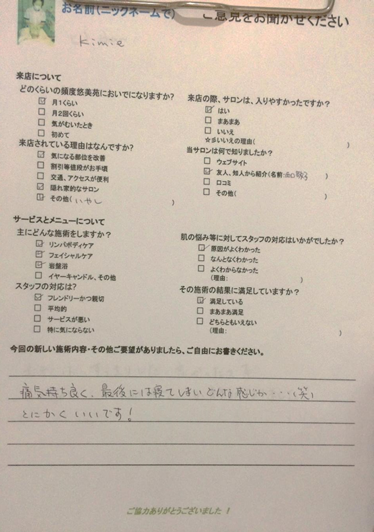 お名前(ニックネームで) ご意見をお聞かせください
Kimie
来店について
どのくらいの頻度悠美苑においでになりますか?
☑ 月1くらい
☐ 月2回くらい
☐ 気がむいたとき
☐ 初めて
来店されている理由はなんですか?
☑ 気になる部位を改善
☐ 割引等値段がお手頃
☐ 交通、アクセスが便利
☑ 隠れ家的なサロン
☑ その他( いやし )
来店の際、サロンは、入りやすかったですか?
☑ はい
☐ まあまあ
☐ いいえ
☆彡いいえの理由( )
当サロンは何で知りましたか?
☐ ウェブサイト
☑ 友人、知人から紹介(名前: )
☐ 口コミ
☐ その他( )
サービスとメニューについて
主にどんな施術をしますか?
☑ リンパボディケア
☑ フェイシャルケア
☑ 岩盤浴
☐ イヤーキャンドル、その他
スタッフの対応は?
☑ フレンドリーかつ親切
☐ 平均的
☐ サービスが悪い
☐ 特に気にならない
肌の悩み等に対してスタッフの対応はいかがでしたか?
☑ 原因がよくわかった
☐ なんとなくわかった
☐ よくわからなかった
(理由: )
その施術の結果に満足していますか?
☑ 満足している
☐ まあまあ満足
☐ どちらともいえない
(理由: )
今回の新しい施術内容・その他ご要望がありましたら、ご自由にお書きください。
痛気持ち良く、最後には寝てしまいどんな感じか・・・・(笑)
とにかくいいです!
ご協力ありがとうございました !